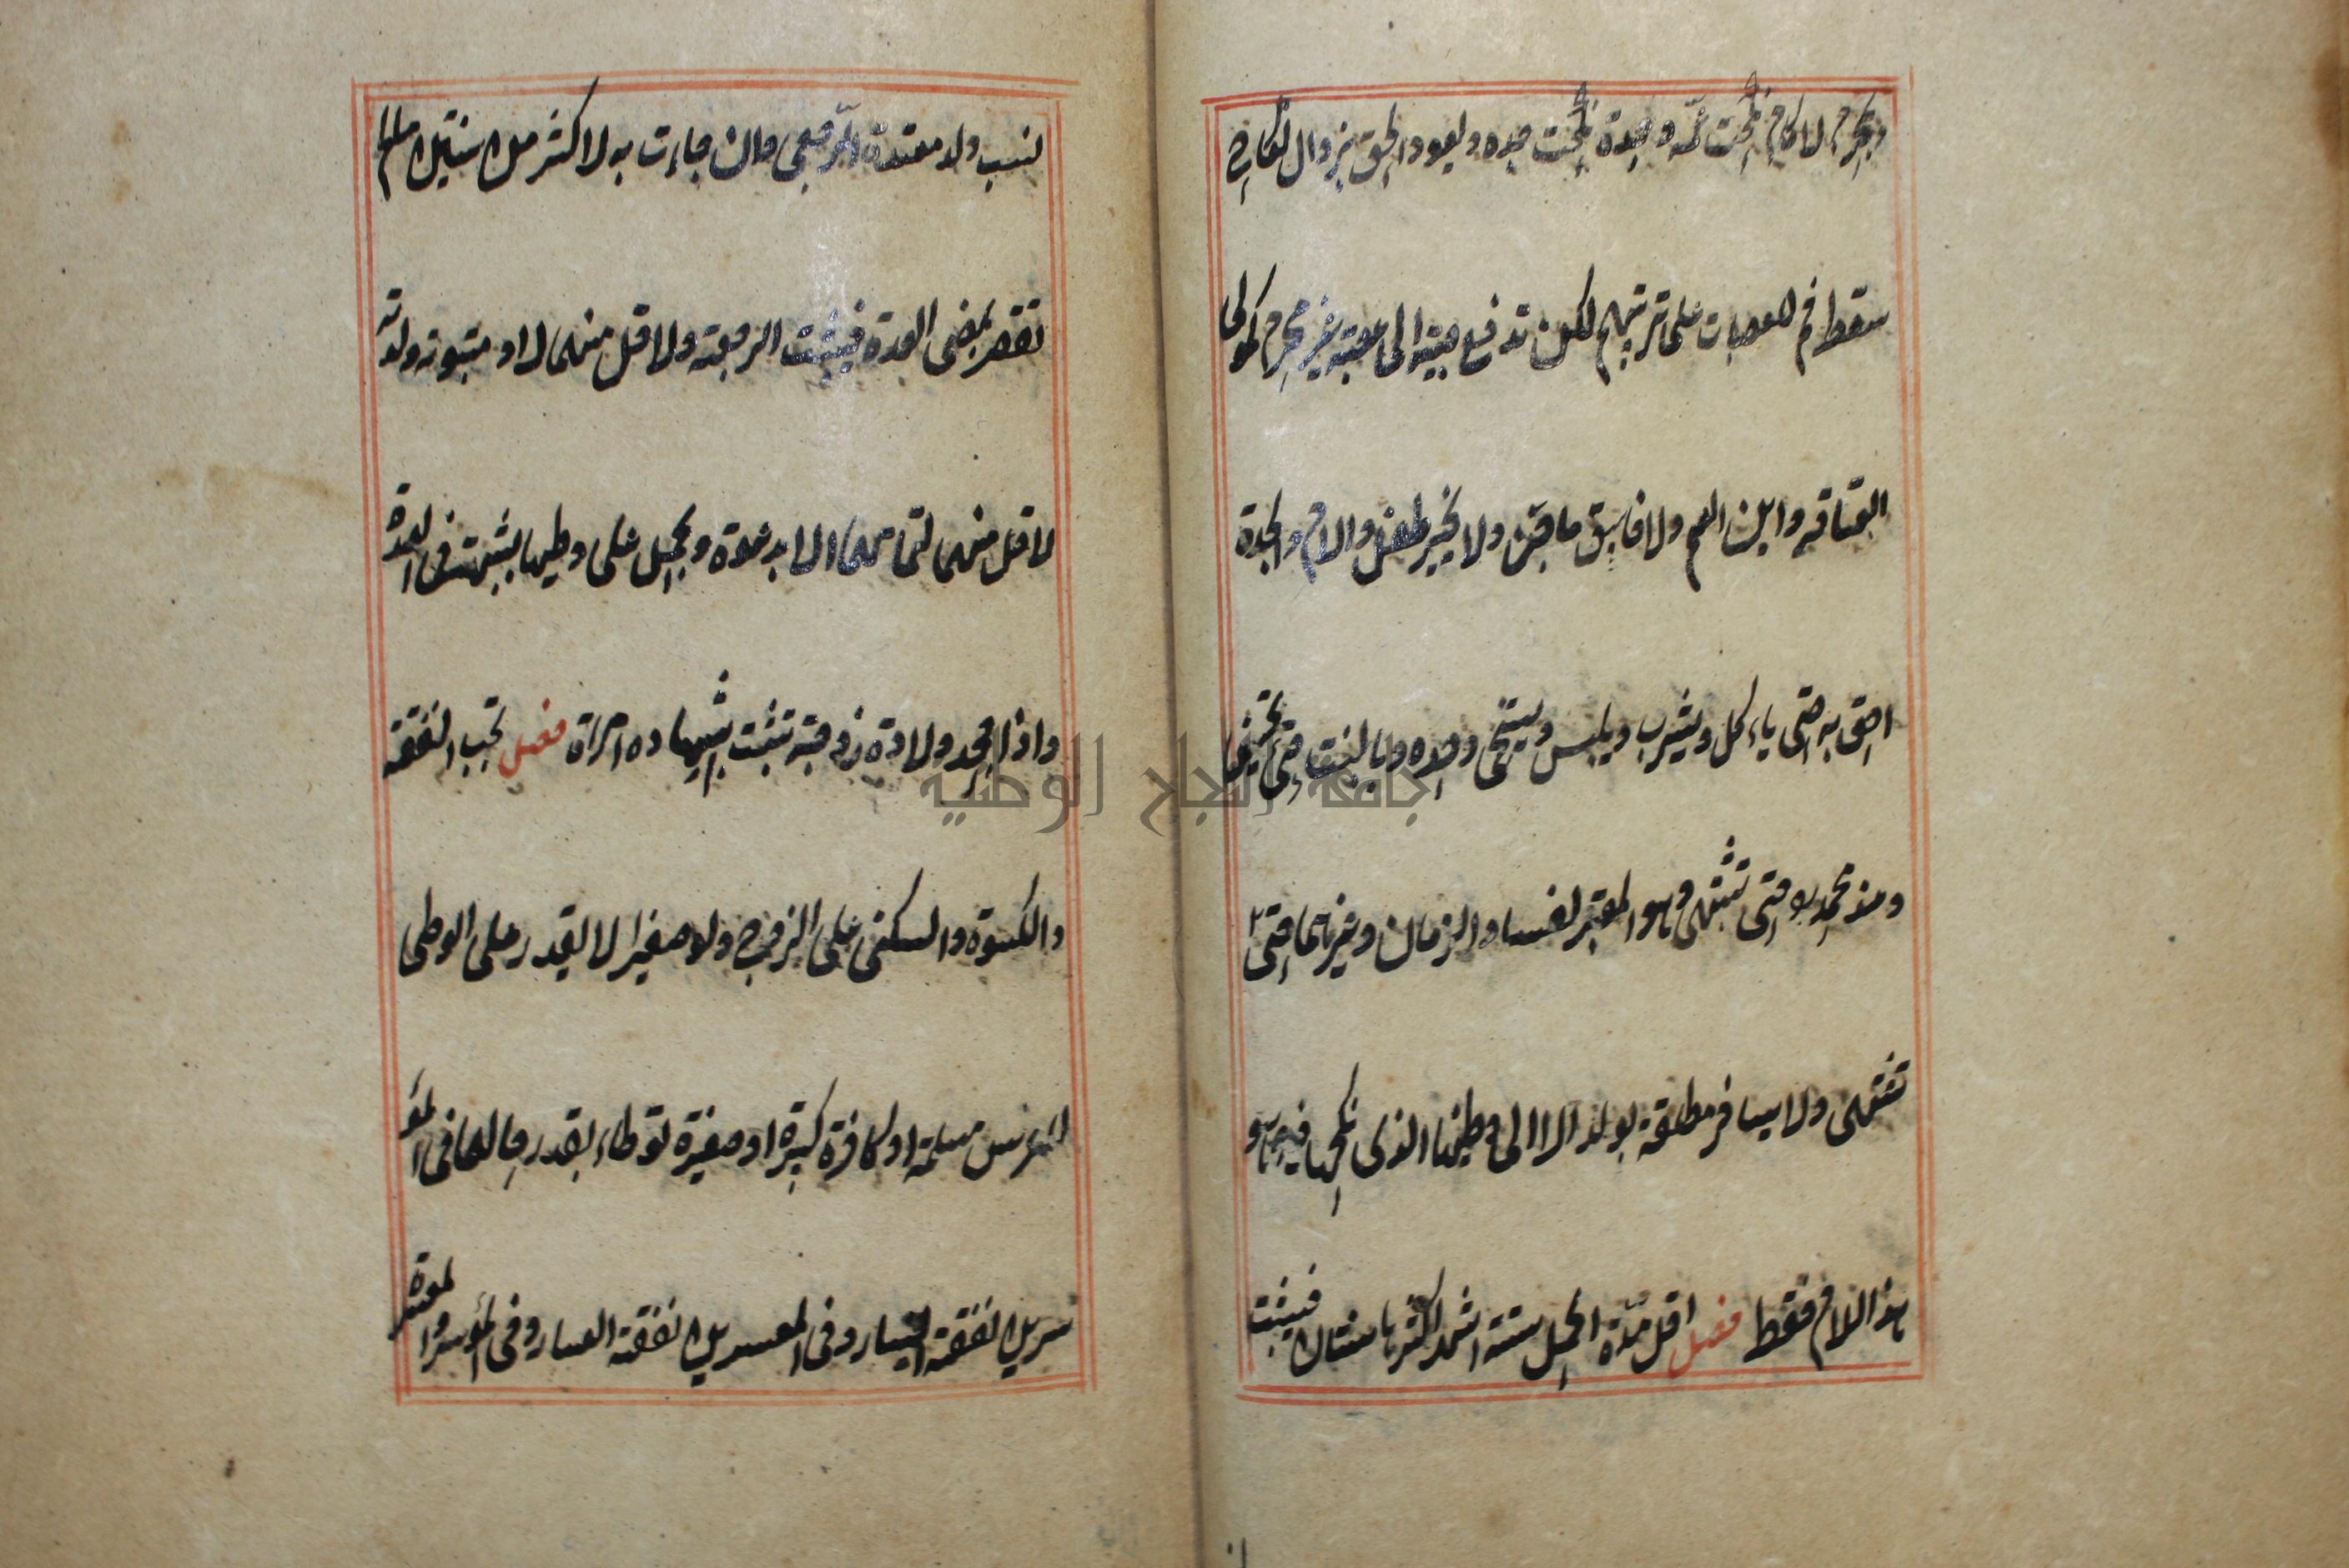 وبمحرم لا كام نكحت عمه وجدة نكحت جده ويعود الحق بزوال نكاح
سقط ثم العصبات على ترتيبهم لكن لا تدفع صبية الى عصبة غير محرم كمولى
العتاقه وابن العم ولا فاسق ماجن ولا يخير طفل والام والجدة
احق به حتى ياءكل ويشرب ويلبس ويستنجى وحده وبالبنت حتى تحيض
وعند محمد رح حتى تشتهى وهو المعتبر لفساد الزمان وغيرهما حتى
تشتهى ولا يسافر مطلقة بولد الا الى وطنها الذى نكحها فيه وهو
هذا للام فقط فصل اقل مدة الحمل ستة اشهر اكثرها سنتان فيثبت
نسب ولد معتدة الرجعى وان جاءت به لاكثر من سنتين ما لم
تقر بمضى العدة فيثبت الرجعة ولاقل منهما لا او مبتوته ولدته
لاقل منهما لتمامهما الا بدعوة ويحمل على وطيها بشبهة فى العدة
واذا جحد ولادة زوجته تثبت بشهادة امراة فصل تجب النفقة
والكسوة والسكنى على الزوج ولو صغيرا لا يقدر على الوطى
للعرس مسلمة او كافرة كبيرة او صغيرة توطاء بقدر حالهما فى المو
سرين نفقة اليسار وفى المعسرين نفقة العسار وفى الموسر والمعسرة
جامعة النجاح الوطنية